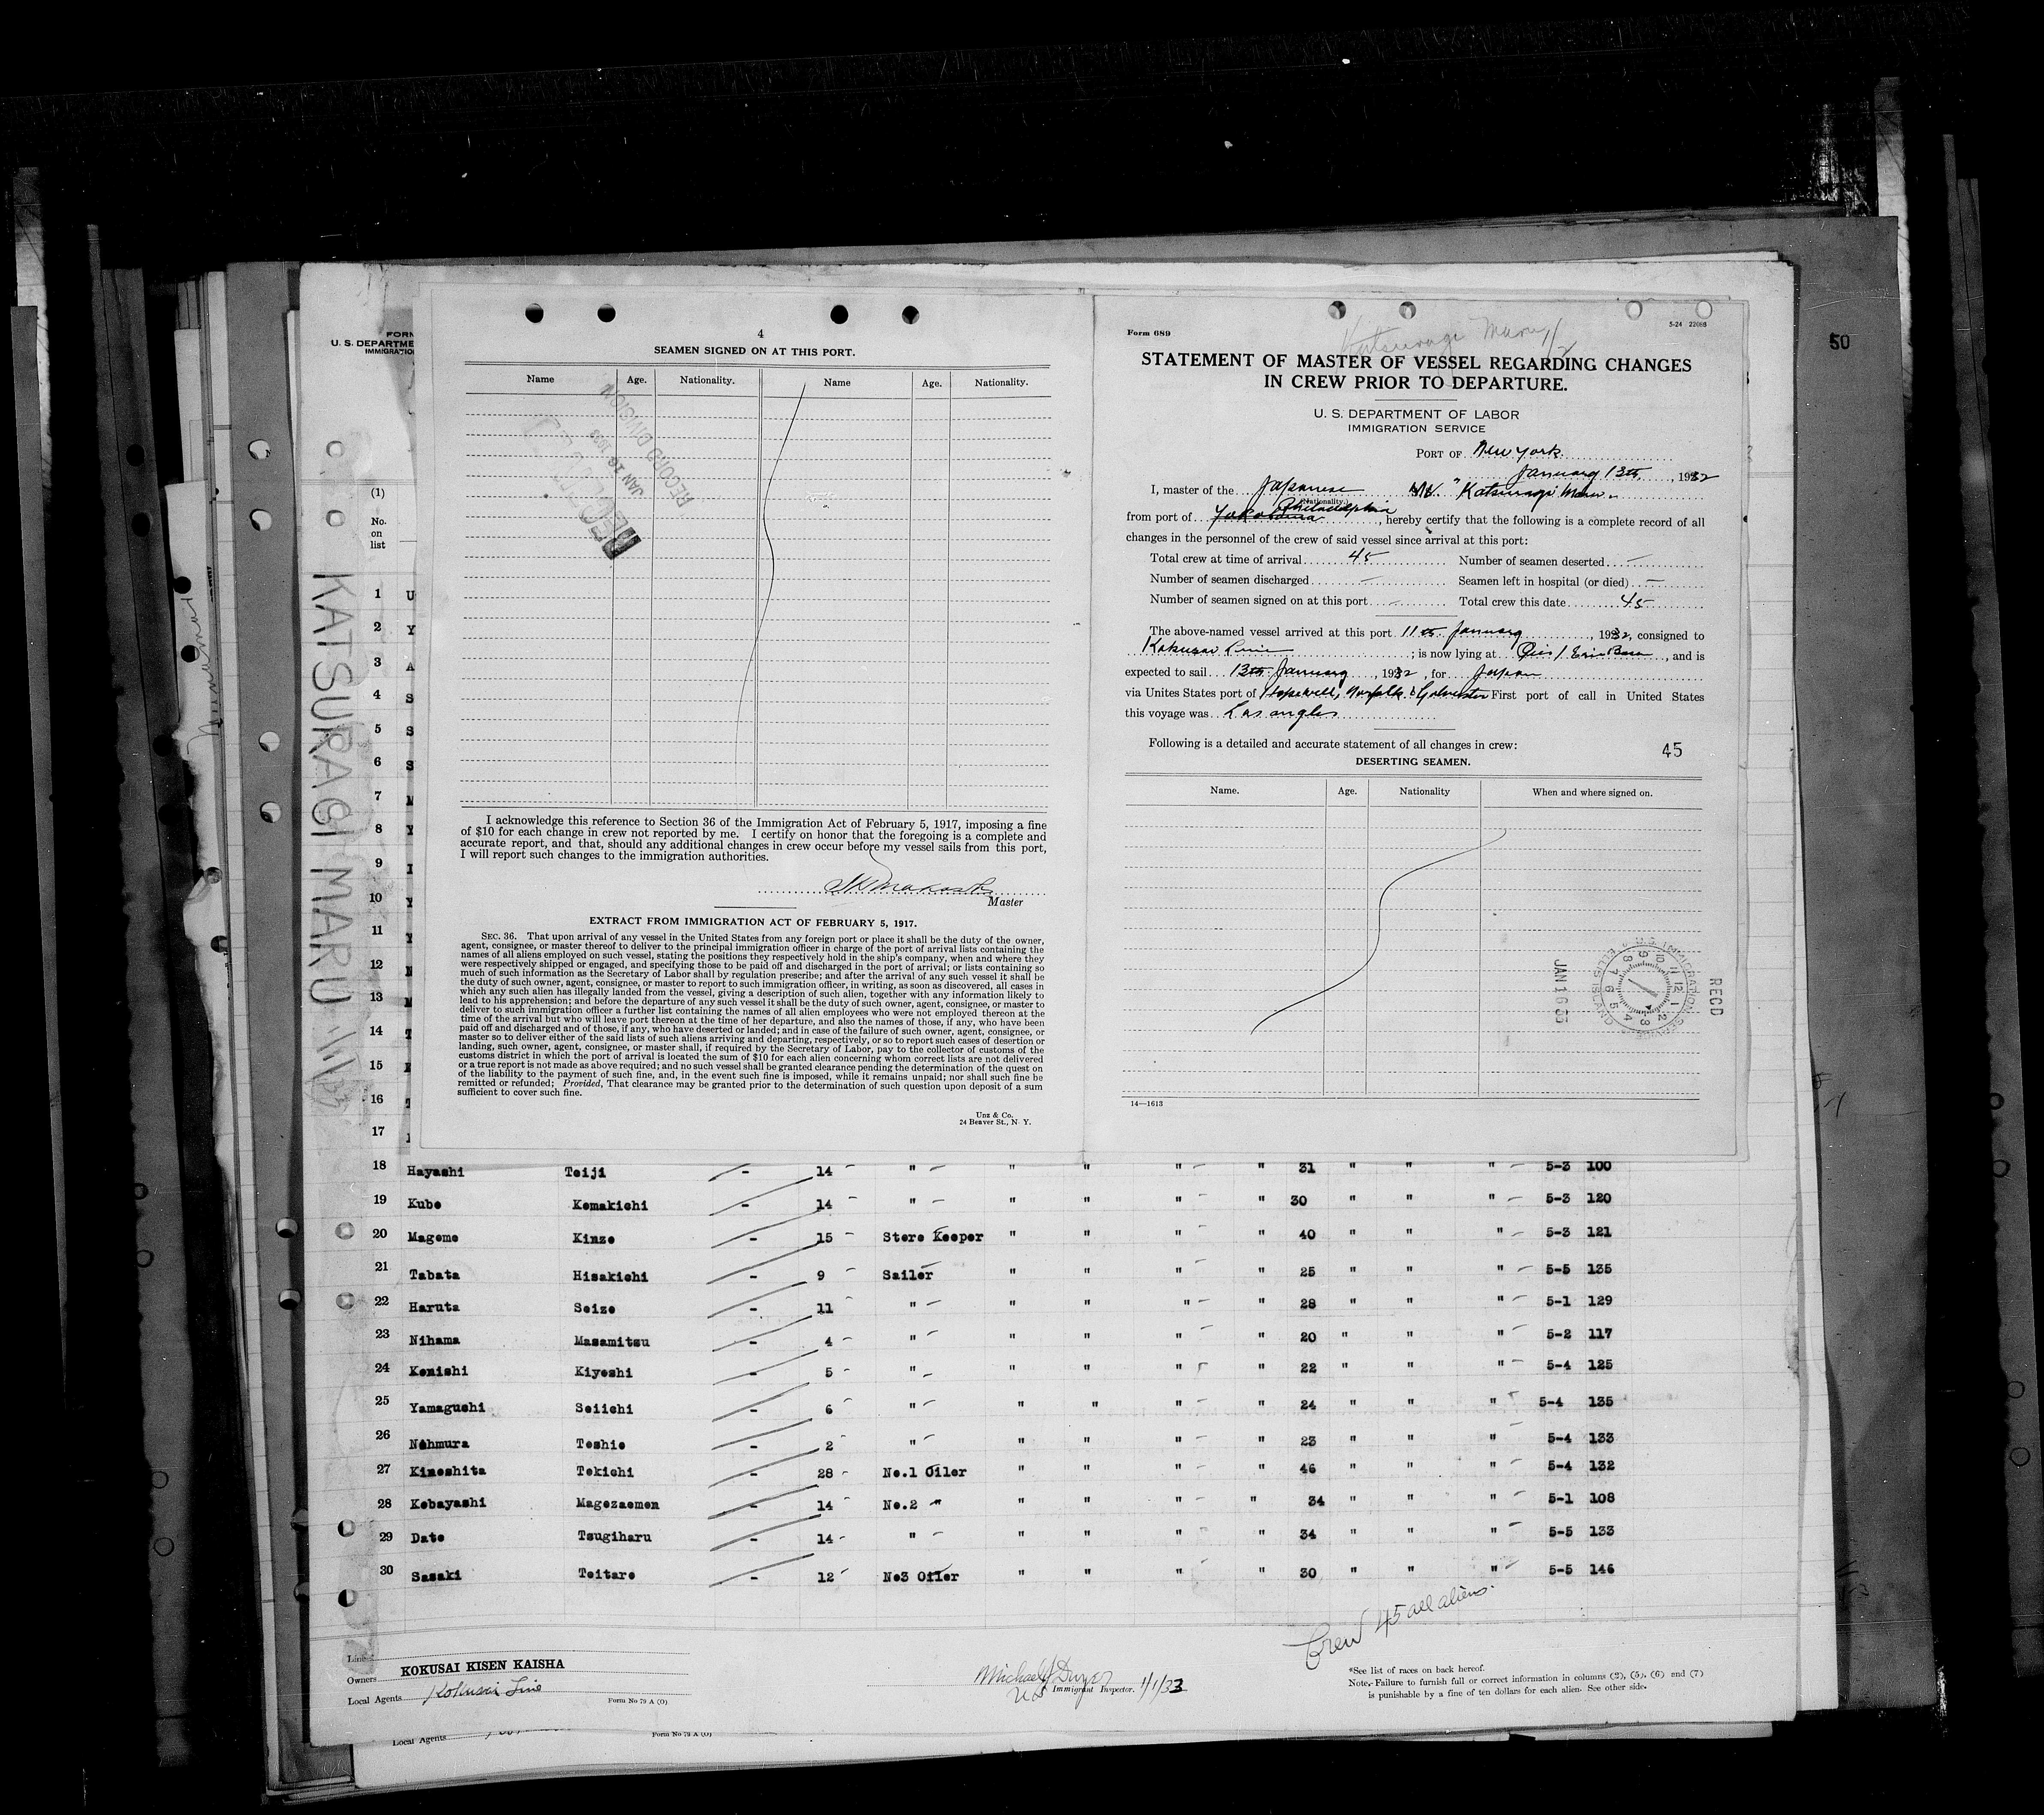 50
FORM
U. S. DEPARTME
IMMIGRATIO
(1)
No.
on
list
KATSURAGI MARU
4
SEAMEN SIGNED ON AT THIS PORT.
Name Age. Nationality. Name Age. Nationality.
RECORD DIVISION
I acknowledge this reference to Section 36 of the Immigration Act of February 5, 1917, imposing a fine
of $10 for each change in crew not reported by me. I certify on honor that the foregoing is a complete and
accurate report, and that, should any additional changes in crew occur before my vessel sails from this port,
I will report such changes to the immigration authorities.
Master
EXTRACT FROM IMMIGRATION ACT OF FEBRUARY 5, 1917.
SEC. 36. That upon arrival of any vessel in the United States from any foreign port or place it shall be the duty of the owner,
agent, consignee, or master thereof to deliver to the principal immigration officer in charge of the port of arrival lists containing the
names of all aliens employed on such vessel, stating the positions they respectively hold in the ship's company, when and where they
were respectively shipped or engaged, and specifying those to be paid off and discharged in the port of arrival; or lists containing so
much of such information as the Secretary of Labor shall by regulation prescribe; and after the arrival of any such vessel it shall be
the duty of such owner, agent, consignee, or master to report to such immigration officer, in writing, as soon as discovered, all cases in
which any such alien has illegally landed from the vessel, giving a description of such alien, together with any information likely to
lead to his apprehension; and before the departure of any such vessel it shall be the duty of such owner, agent, consignee, or master to
deliver to such immigration officer a further list containing the names of all alien employees who were not employed thereon at the
time of the arrival but who will leave port thereon at the time of her departure, and also the names of those, if any, who have been
paid off and discharged and of those, if any, who have deserted or landed; and in case of the failure of such owner, agent, consignee, or
master so to deliver either of the said lists of such aliens arriving and departing, respectively, or so to report such cases of desertion or
landing, such owner, agent, consignee, or master shall, if required by the Secretary of Labor, pay to the collector of customs of the
customs district in which the port of arrival is located the sum of $10 for each alien concerning whom correct lists are not delivered
or a true report is not made as above required; and no such vessel shall be granted clearance pending the determination of the quest on
of the liability to the payment of such fine, and, in the event such fine is imposed, while it remains unpaid; nor shall such fine be
remitted or refunded; Provided, That clearance may be granted prior to the determination of such question upon deposit of a sum
sufficient to cover such fine.
Unz & Co.
24 Beaver St., N. Y.
Form 689 Katsuragi Maru 5-24 22086
STATEMENT OF MASTER OF VESSEL REGARDING CHANGES
IN CREW PRIOR TO DEPARTURE.
U. S. DEPARTMENT OF LABOR
IMMIGRATION SERVICE
PORT OF New York
January 13th, 1932
I, master of the Japanese M/V. "Katsuragi Maru"
(Nationality.)
from port of Yokohama Philadelphia, hereby certify that the following is a complete record of all
changes in the personnel of the crew of said vessel since arrival at this port:
Total crew at time of arrival 45 Number of seamen deserted —
Number of seamen discharged — Seamen left in hospital (or died) —
Number of seamen signed on at this port — Total crew this date 45
The above-named vessel arrived at this port 11th January, 1932, consigned to
Kokusai Line; is now lying at Pier 1 Erie Basin, and is
expected to sail 13th January, 1932, for Japan
via Unites States port of Hopewell, Norfolk & Galveston First port of call in United States
this voyage was Los angles
Following is a detailed and accurate statement of all changes in crew:
45
DESERTING SEAMEN.
Name. Age. Nationality When and where signed on.
U.S. IMMIGRATION SERVICE ELLIS ISLAND
RECD
14—1613
1 U
2 Y
3 A
4 S
5 S
6 S
7 M
8 Y
9 I
10 Y
11
12
13
14 T
15
16
17
18 Hayashi Teiji - 14 " " " " " 31 " " " 5-3 100
19 Kubo Komakichi - 14 " " " " " 30 " " " 5-3 120
20 Magome Kinzo - 15 Store Keeper " " " " 40 " " " 5-3 121
21 Tabata Hisakichi - 9 Sailor " " " " 25 " " " 5-5 135
22 Haruta Seizo - 11 " " " " " 28 " " " 5-1 129
23 Nihama Masamitsu - 4 " " " " " 20 " " " 5-2 117
24 Konishi Kiyoshi - 5 " " " " " 22 " " " 5-4 125
25 Yamaguchi Seiichi - 6 " " " " " 24 " " " 5-4 135
26 Nohmura Toshio - 2 " " " " " 23 " " " 5-4 133
27 Kinoshita Tokichi - 28 No.1 Oiler " " " " 46 " " " 5-4 132
28 Kobayashi Magozaemon - 14 No.2 " " " " " 34 " " " 5-1 108
29 Date Tsugiharu - 14 " " " " " 34 " " " 5-5 133
30 Sasaki Teitaro - 12 No3 Oiler " " " " 30 " " " 5-5 146
Crew 45 all aliens.
Line
Owners KOKUSAI KISEN KAISHA
Local Agents Kokusai Line
Form No 79 A (O)
Michael J Dwyer
US Immigrant Inspector. 1/11/33
*See list of races on back hereof.
Note.- Failure to furnish full or correct information in columns (2), (5), (6) and (7)
is punishable by a fine of ten dollars for each alien. See other side.
Local Agents
Form No 79 A (O)